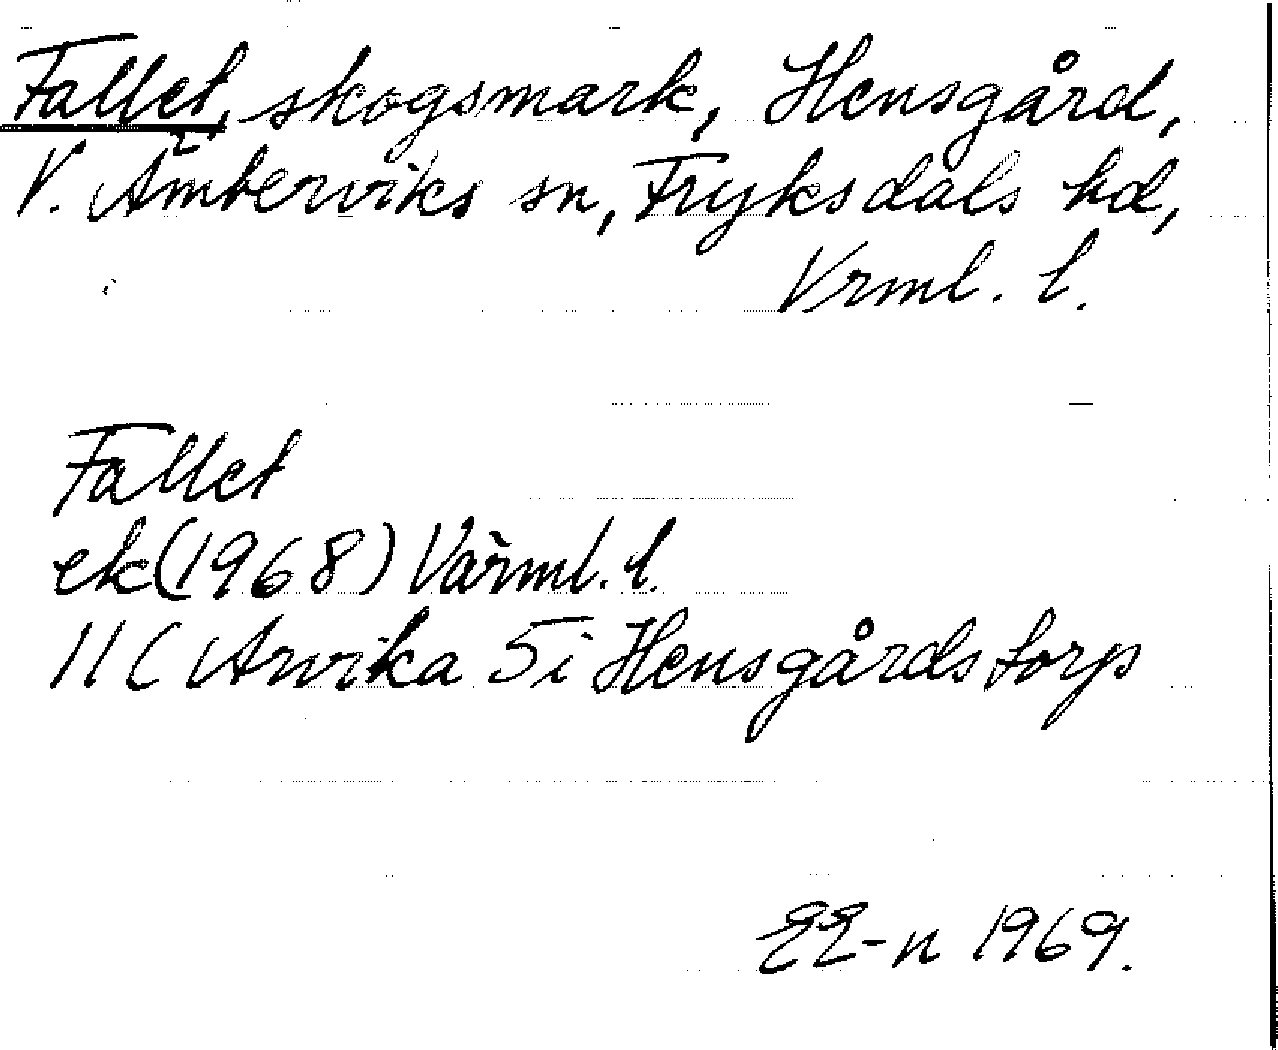 Fallet, skogsmark, Hensgård,
V. Ämterviks sn, Fryksdals hd,
Vrml. l.
Fallet
ek (1968) Värml. l.
11C Arvika 5i Hensgårdstorp
EE-n 1969.